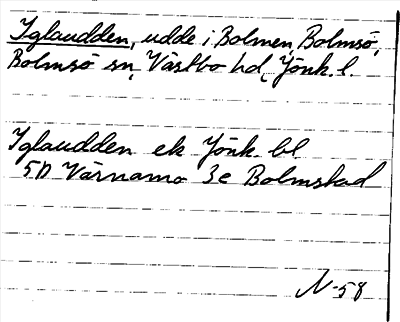 Iglaudden, udde i Bolmen, Bolmsö,
Bolmsö sn, Västbo hd, Jönk. l.
Iglaudden ek Jönk. bl.
5D Värnamo 3e Bolmstad
N-58